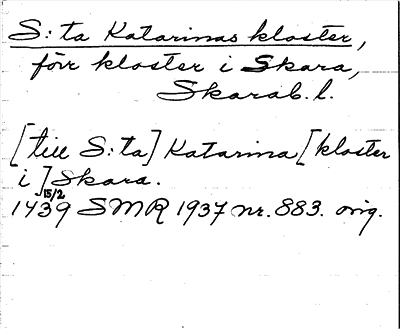 S:ta Katarinas kloster,
förr kloster i Skara,
Skarab. l.
[till S:ta] Katarina [kloster
i] Skara.
1439 15/2 SMR 1937 nr. 883. orig.